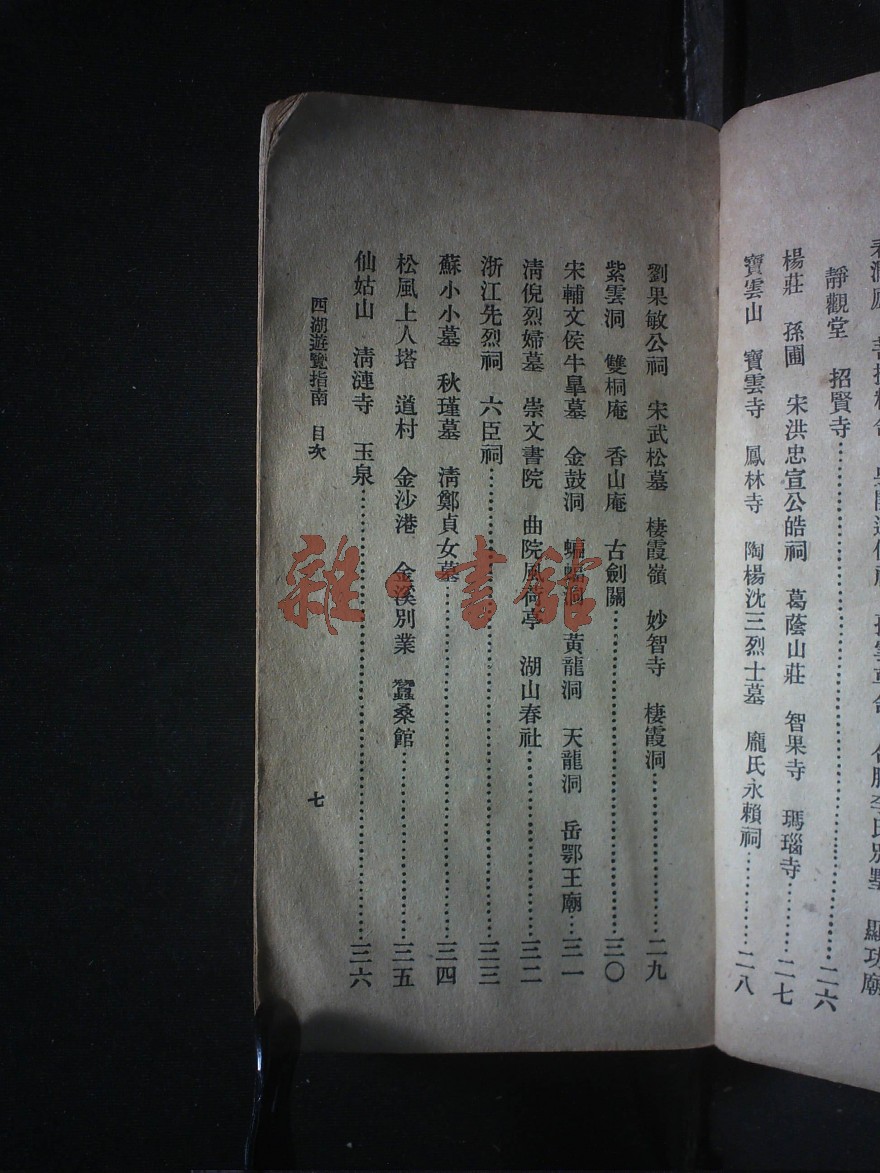 顯功廟
靜觀堂　招賢寺……………二六
楊莊　孫圃　宋洪忠宣公皓祠　葛蔭山莊　智果寺　瑪瑙寺………二七
寶雲山　寶雲寺　鳳林寺　陶楊沈三烈士墓　龐氏永賴祠………二八
劉果敏公祠　宋武松墓　棲霞嶺　妙智寺　棲霞洞……………二九
紫雲洞　雙桐庵　香山庵　古劍關……………三〇
宋輔文侯牛臯墓　金鼓洞　蝙蝠洞　黃龍洞　天龍洞　岳鄂王廟……三一
淸倪烈婦墓　崇文書院　曲院風荷亭　湖山春社……………三二
浙江先烈祠　六臣祠……………三三
蘇小小墓　秋瑾墓　淸鄭貞女墓……………三四
松風上人塔　道村　金沙港　金溪別業　蠶桑館……………三五
仙姑山　淸漣寺　玉泉……………三六
西湖遊覽指南　目次
七
雜·書館